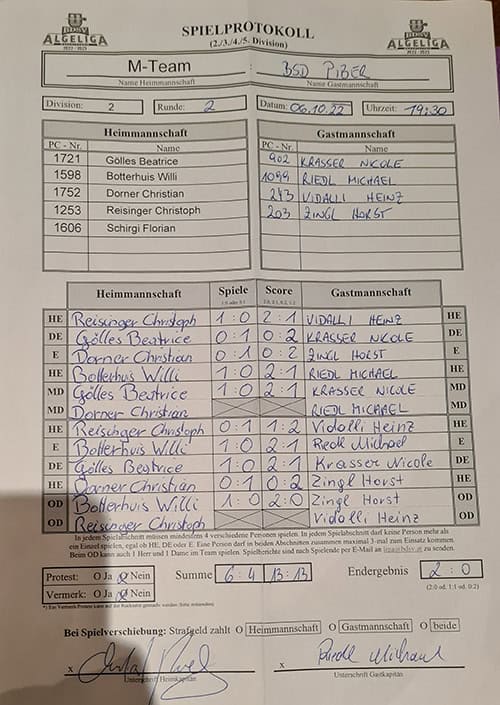 BDSV
ALGELIGA
2022 - 2023
SPIELPROTOKOLL
(2./3./4./5. Division)
BDSV
ALGELIGA
2022 - 2023
M-Team : BSD PIBER
Name Heimmannschaft Name Gastmannschaft
Division: 2 Runde: 2 Datum: 06.10.22 Uhrzeit: 19:30
Heimmannschaft Gastmannschaft
PC - Nr. Name PC - Nr. Name
1721 Gölles Beatrice 902 KRASSER NICOLE
1598 Botterhuis Willi 1099 RIEDL MICHAEL
1752 Dorner Christian 243 VIDALLI HEINZ
1253 Reisinger Christoph 203 ZINGL HORST
1606 Schirgi Florian
Heimmannschaft Spiele Score Gastmannschaft
1:0 oder 0:1 2:0, 2:1, 0:2, 1:2
HE Reisinger Christoph 1:0 2:1 VIDALLI HEINZ HE
DE Gölles Beatrice 0:1 0:2 KRASSER NICOLE DE
E Dorner Christian 0:1 0:2 ZINGL HORST E
HE Botterhuis Willi 1:0 2:1 RIEDL MICHAEL HE
MD Gölles Beatrice 1:0 2:1 KRASSER NICOLE MD
MD Dorner Christian RIEDL MICHAEL MD
HE Reisinger Christoph 0:1 1:2 Vidalli Heinz HE
E Botterhuis Willi 1:0 2:1 Riedl Michael E
DE Gölles Beatrice 1:0 2:1 Krasser Nicole DE
HE Dorner Christian 0:1 0:2 Zingl Horst HE
OD Botterhuis Willi 1:0 2:0 Zingl Horst OD
OD Reisinger Christoph Vidalli Heinz OD
In jedem Spielabschnitt müssen mindestens 4 verschiedene Personen spielen. In jedem Spielabschnitt darf keine Person mehr als
ein Einzel spielen, egal ob HE, DE oder E. Eine Person darf in beiden Abschnitten zusammen maximal 3-mal zum Einsatz kommen.
Beim OD kann auch 1 Herr und 1 Dame im Team spielen. Spielberichte sind nach Spielende per E-Mail an liga@bdsv.at zu senden.
Protest: O Ja O Nein Summe 6:4 13:13 Endergebnis 2:0
Vermerk: O Ja O Nein (2:0 od. 1:1 od. 0:2)
Bei Spielverschiebung: Strafgeld zahlt O Heimmannschaft O Gastmannschaft O beide
x x Riedl Michael
Unterschrift Heimkapitän Unterschrift Gastkapitän